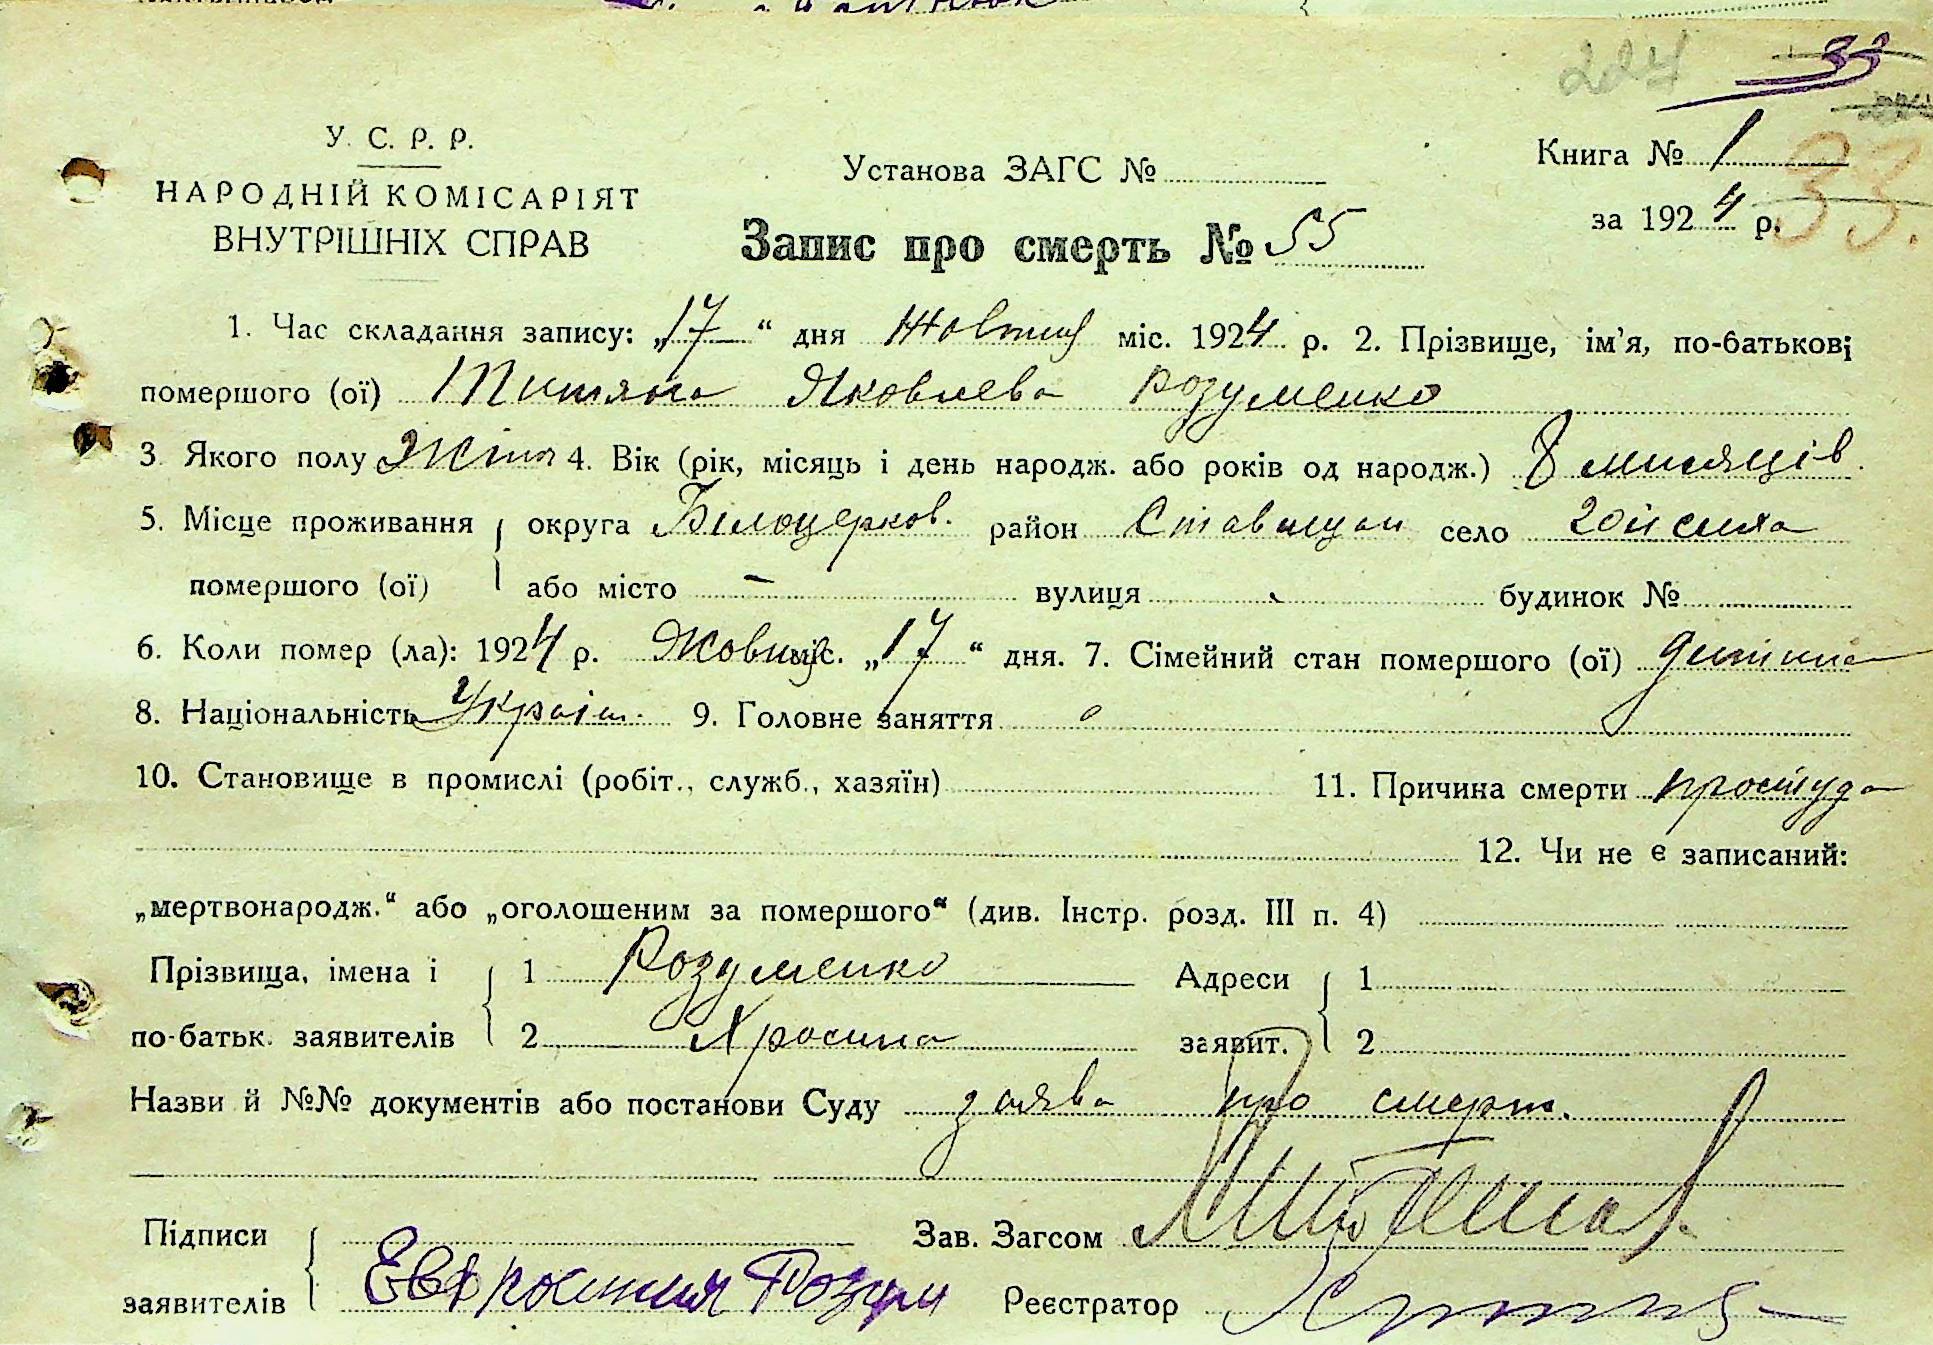 224 33
У. С. Р. Р.
НАРОДНІЙ КОМІСАРІЯТ
ВНУТРІШНІХ СПРАВ
Установа ЗАГС №
Книга № 1
за 1924 р.
33.
Запис про смерть № 55
1. Час складання запису: „17“ дня Жовтня міс. 1924 р. 2. Прізвище, ім’я, по-батькові
помершого (ої) Титяна Яковлева Розуменко
3. Якого полу Жіноч 4. Вік (рік, місяць і день народж. або років од народж.) 8 мисяців.
5. Місце проживання округа Білоцерков. район Ставищан село
помершого (ої) або місто — вулиця будинок №
6. Коли помер (ла): 1924 р. Жовтня міс. „17“ дня. 7. Сімейний стан помершого (ої) дитина
8. Національність Україн. 9. Головне заняття
10. Становище в промислі (робіт., служб., хазяїн) 11. Причина смерти простуда
12. Чи не є записаний:
„мертвонародж.“ або „оголошеним за помершого“ (див. Інстр. розд. III п. 4)
Прізвища, імена і 1 Розуменко Адреси 1
по-батьк. заявителів 2 Хросина заявит. 2
Назви й №№ документів або постанови Суду заява про смерт.
Підписи Зав. Загсом
заявителів Евфросиния Розум Реєстратор